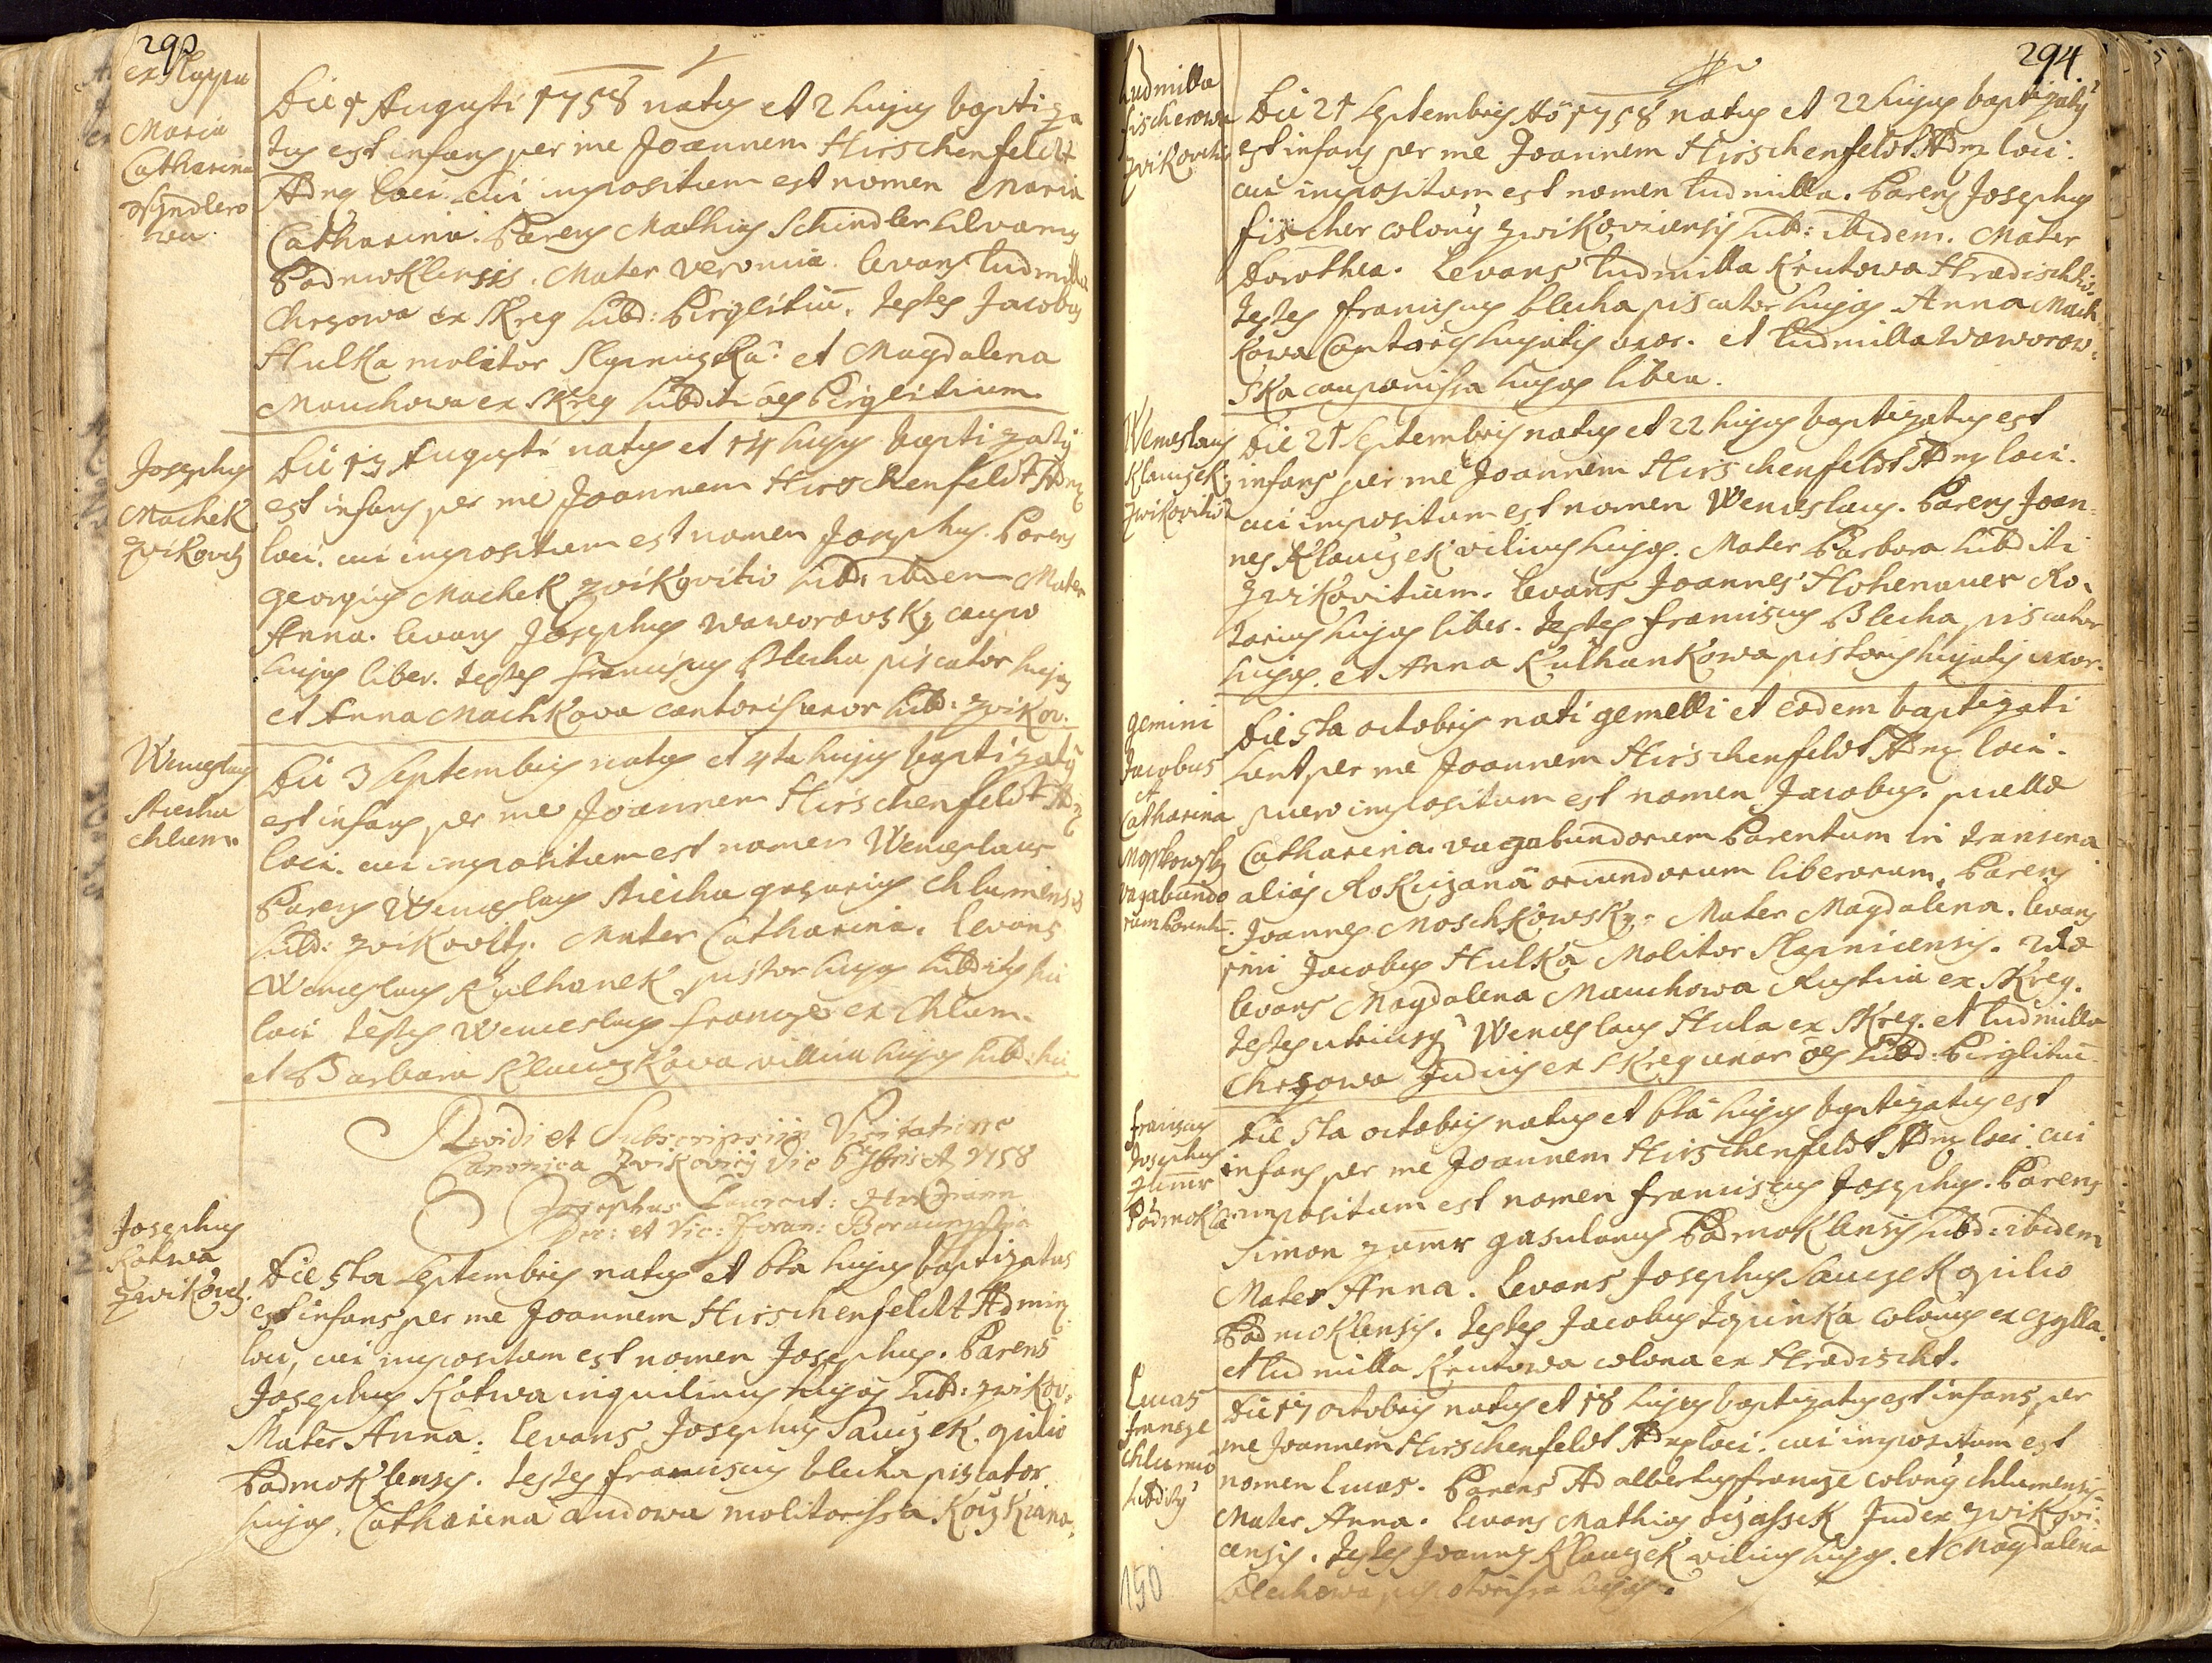 290
ex Slapi
Maria
Catharina
Ssindlero
wa
Die 1 Augusti 1758 natus et 2 hujus baptiza
tus est infans per me Joannem Hirschenfeldt
Adm̅ loci cui impositum est nomen Maria
Catharina. Parens Mathias Schindler silvanus
Podmoklensis. Mater Veronica. levans Ludmilla
Chrzowa ex Skreg subd: Pirglitiū. testes Jacobus
Hulka molitor et Magdalena
Mauchowa ex Skreg subditi oēs Pirglitium.
Josephus
Machek
Zvikovtz
Die 13 Augusti natus et 14 hujus baptizatus
est infans per me Joannem Hirschenfeldt Adm̅
loci. cui impositum est nomen Josephus. Parens
Georgius Machek zvikovitio subd: ibidem Mater
Anna. levans Josephus Waworovsky caupo
hujas liber. testes Franciscus Blecha piscator hujas
et Anna Machkova cantoris uxor subd: zvikov.
Wenceslaus
chlum.
Die 3 Septembris natus et 4ta hujus baptizatus
est infans per me Joannem Hirschenfeldt Adm̅
loci. cui impositum est nomen Wenceslaus
Parens Wenceslaus chlumensis
subd: zvikovitz. Mater Catharina. levans
Wenceslaus Kulhanek pistor hujas subditus hu
loci testes Wenceslaus Francze ex Chlum.
et Barbara Klauczkova villica hujas subd: hu
Revidi et Subscripsi in Visitatione
Canonica Zvikovicij die 6 7bris A 1758
Josephus Laurent:
Dec: et Vic: Foran: Beraunensis
Josephus
Kotwa
Zwikovtz.
Die 5ta Septembris natus et 6ta hujus baptizatus
est infans per me Joannem Hirschenfeldt Admin̅
loci, cui impositum est nomen Josephus. Parens
Josephus Kotwa inquilinus hujas subd: zwikov.
Mater Anna. levans Josephus Sauczek opilio
Podmoklensis. testes Franciscus blecha piscator
hujas, Catharina audowa molitorissa

294.
Ludmilla
Fischerowa
Zvikovitii
Die 21 Septembris Aō 1758 natus et 22 hujus baptizatus
est infans per me Joannem Hirschenfeldt Adm̅ loci.
cui impositum est nomen Ludmilla. Parens Josephus
fischer colonus zwikoviensis subd: ibidem. Mater
Dorothea. Levans Ludmilla Krutowa Hradischtio.
testes Franciscus blecha piscator hujas Anna Mach
kowa Cantoris hujatis uxor. et Ludmilla Wavorow-
ska cauponissa hujas libera.
Wenceslaus
Klauczek
Zwikovitio
Die 21 Septembris natus et 22 hujus baptizatus est
infans per me Joannem Hirschenfeldt Adm̅ loci.
cui impositum est nomen Wenceslaus. Parens Joan-
nes Klauczek vilicus hujas. Mater Barbara subditi
Zwikovitium. levans Joannes Hohenauer Ro-
tarius hujas liber. testes Franciscus Blecha piscator
hujas. et Anna Kulhankowa pistoris hujatis uxor.
gemini
Jacobus
et
Catharina
Moschkowsky
vagabundo
rum Parentū.
Die 5ta octobris nati gemelli et eodem baptizati
sunt per me Joannem Hirschenfeldt Adm̅ loci.
puero impositum est nomen Jacobus. puellae
Catharina. vagabundorum Parentum in transena
alias Rokiczana oriundorum liberorum. Parens
Joannes Moschkowsky. Mater Magdalena. levans
Jacobus Hulka Molitor
levans Magdalena Mauchowa Rustica ex Skreg.
testes utriusq̃ Wenceslaus Hula ex Skreg. et Ludmilla
Chrzowa Judicis ex Skreg uxor oēs subd: Pirglitiū.
Franciscus
Josephus
Podmokla
Die 5ta octobris natus et 6ta hujus baptizatus est
infans per me Joannem Hirschenfeldt Adm̅ loci. cui
impositum est nomen Franciscus Josephus. Parens
Simon casularius Podmoklensis subd: ibidem
Mater Anna. Levans Josephus Sauczek opilio
Podmoklensis. testes Jacobus colonus ex czylla.
et Ludmilla Krutowa colona ex Hradischt.
Lucas
Francze
Chlumio
subditus
Die 17 octobris natus et 18 hujus baptizatus est infans per
me Joannem Hirschenfeldt Adm̅ loci. cui impositum est
nomen Lucas. Parens Adalbertus Francze colonus chlumensis
Mater Anna. levans Mathias Judex zwikovi-
censis. testes Joannes Klauczek vilicus hujas. et Magdalena
Blechowa piscatorissa hujas.
150